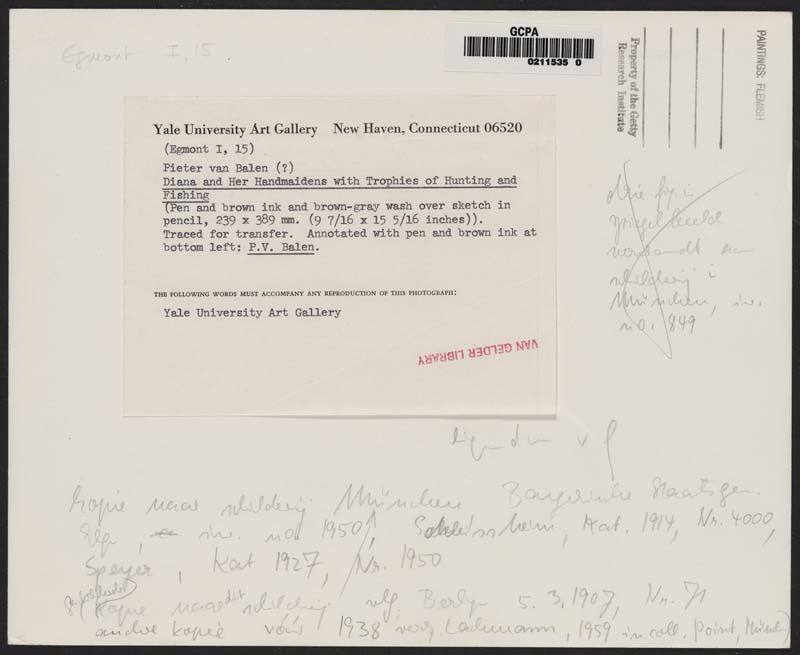 Egmont I, 15.
GCPA
0211535 0
Property of the Getty
Research Institute
PAINTINGS: FLEMISH
Yale University Art Gallery New Haven, Connecticut 06520
(Egmont I, 15)
Pieter van Balen (?)
Diana and Her Handmaidens with Trophies of Hunting and
Fishing
(Pen and brown ink and brown-gray wash over sketch in
pencil, 239 x 389 mm. (9 7/16 x 15 5/16 inches)).
Traced for transfer. Annotated with pen and brown ink at
bottom left: P.V. Balen.
THE FOLLOWING WORDS MUST ACCOMPANY ANY REPRODUCTION OF THIS PHOTOGRAPH:
Yale University Art Gallery
VAN GELDER LIBRARY
in
spiegelbeeld
schilderij i
München, inv.
no. 849
Kopie naar schilderij München Bayerische Staatsgem.
inv. no 1950, Schleissheim, Kat. 1914, Nr. 4000,
Speyer, Kat 1927, Nr. 1950
Kopie naar dit schilderij vlg. Berlijn 5.3.1907, Nr. 71
andere kopie vóór 1938 verz Lachmann, 1959 in coll. Point, Münch)